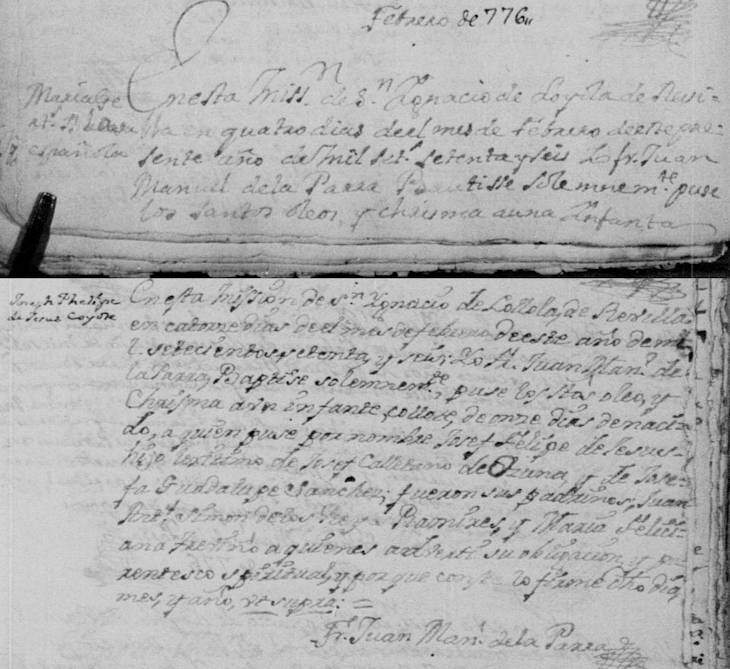 Febrero de 776,,
Maria
española
Enesta Miss.n de S.n Ygnacio de Loyola de Revi=
lla en quatro dias deel mes de febrero de este pre=
sente año de mil set.s setenta y seis Yo fr. Juan
Manuel de la Parra Bautisse solemnem.te puse
los santos oleos, y chrisma a una Ynfanta
Joseph Phelipe
de Jesus Coyote
Enesta Mission de S.n Ygnacio de Lollola, de Revilla
en catorse dias deel mes de febrero de este año de mi
l. setecientos setenta, y seis; Yo fr. Juan Man.l de
la Parra, Baptise solemnem.te, puse los stos oleo, y
Chrisma a un infante collote, de onse dias de naci-
do, a quien puse por nombre Josef Felipe de Jesus-
hijo lexitimo de Josef Calletano de Ozuna, y de Jose-
fa Guadalupe Sanches; fueron sus padrinos, Juan
Simon de los Reyes Ramires, y Maria Felici-
ana Treviño a quienes adverti su obligacion, y pa
rentesco spiritual, y por que conste lo firmé dho dia,
mes, y año, vt supra. =
Fr. Juan Man.l de la Parra